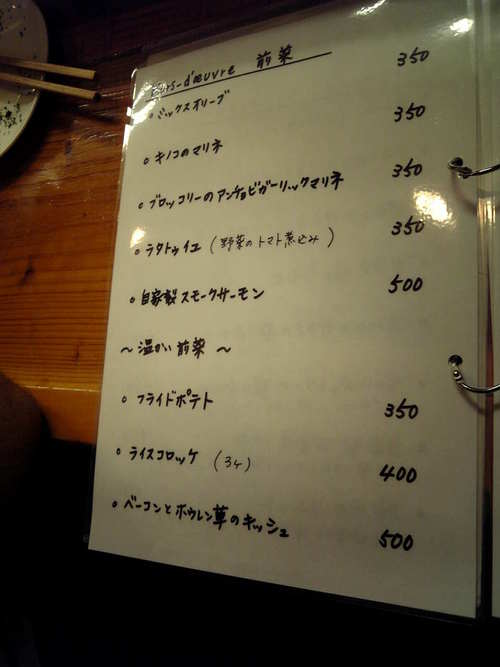 Hors-d'œuvre 前菜
・ミックスオリーブ 350
○ キノコのマリネ 350
○ ブロッコリーのアンチョビガーリックマリネ 350
○ ラタトゥイユ (野菜のトマト煮込み) 350
○ 自家製スモークサーモン 500
～ 温かい前菜 ～
○ フライドポテト 350
○ ライスコロッケ (3ヶ) 400
○ ベーコンとホウレン草のキッシュ 500